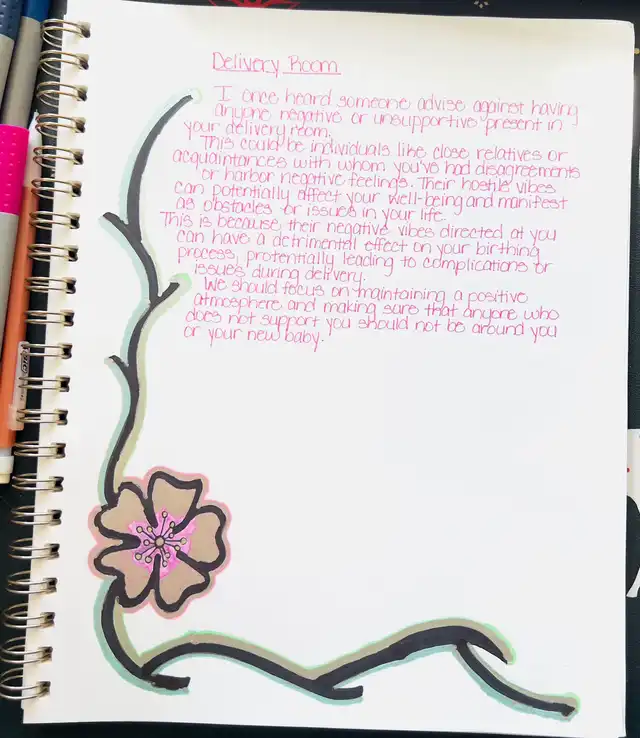 Delivery Room
I once heard someone advise against having
anyone negative or unsupportive present in
your delivery room.
This could be individuals like close relatives or
acquaintances with whom you've had disagreements
or harbor negative feelings. Their hostile vibes
can potentially affect your well-being and manifest
as obstacles or issues in your life.
This is because their negative vibes directed at you
can have a detrimental effect on your birthing
process, protentially leading to complications or
issues during delivery.
We should focus on maintaining a positive
atmosphere and making sure that anyone who
does not support you should not be around you
or your new baby.
BIC